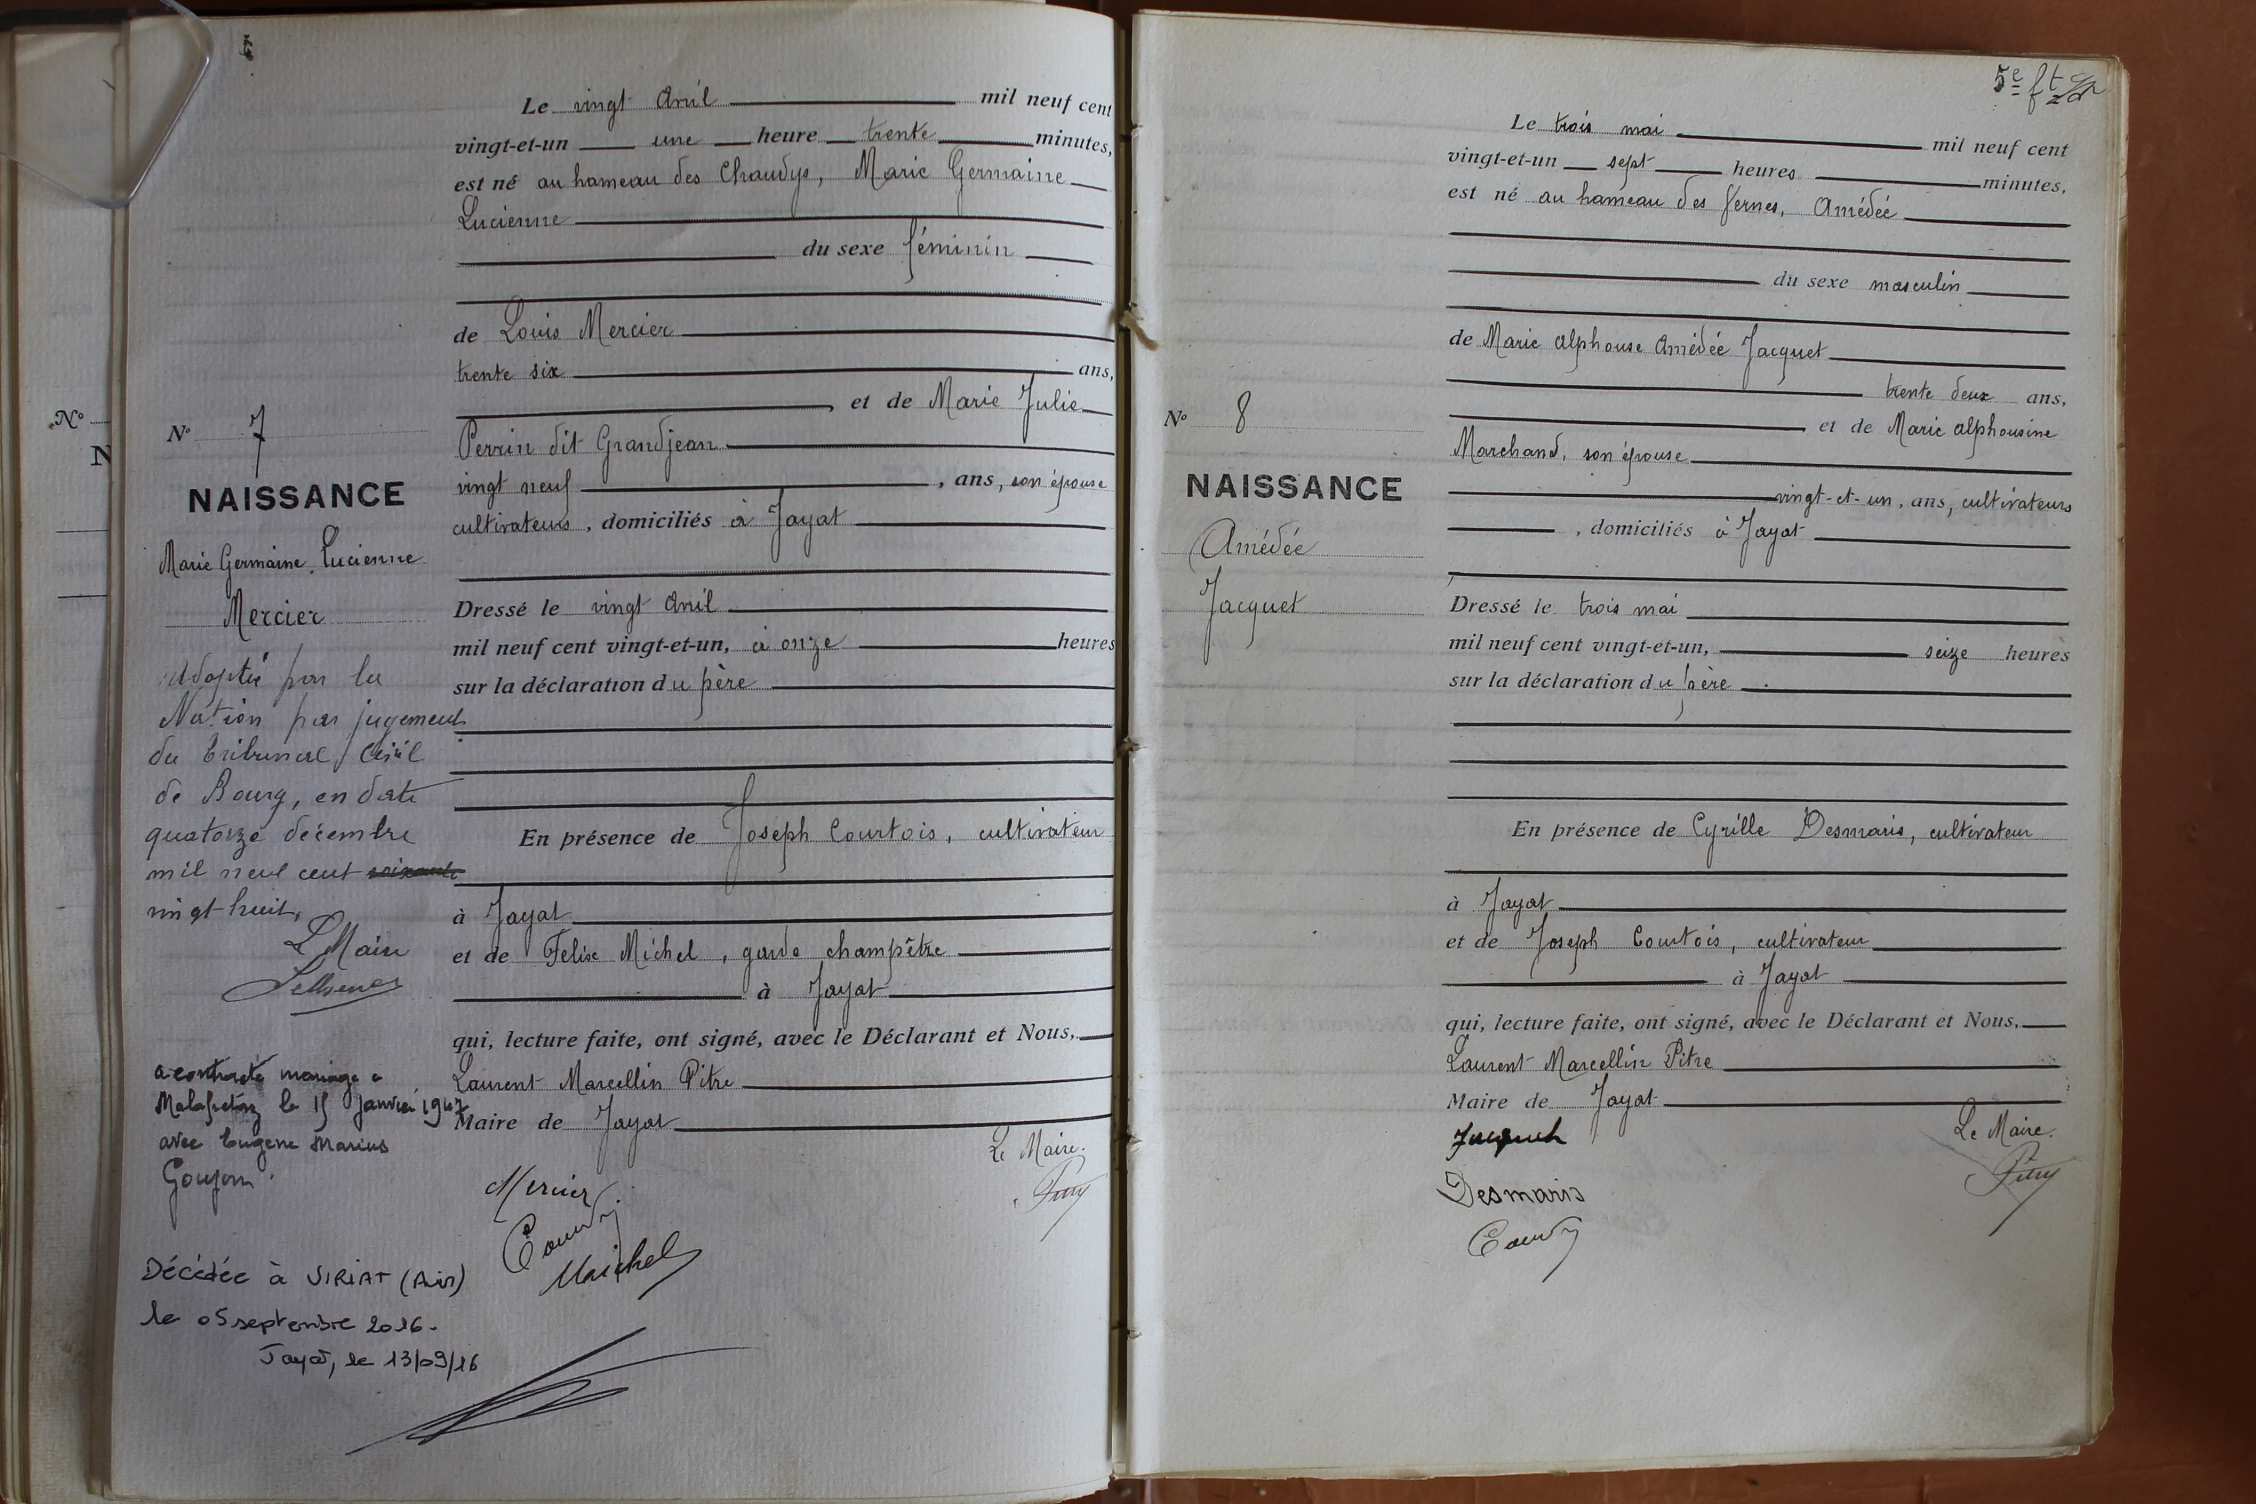 Nº
N
Nº 7
NAISSANCE
Marie Germaine Lucienne
Mercier
Adoptée par la
Nation par jugement
du tribunal civil
de Bourg, en date
quatorze décembre
mil neuf cent soixante
vingt huit,
Le Maire
a contracté mariage a
Malafretaz le 15 Janvier 1947
avec Eugene Marius
Goujon.
Décédée à VIRIAT (Ain)
le 05 septembre 2016.
Jayat, le 13/09/16
Le vingt Avril mil neuf cent
vingt-et-un une heure trente minutes,
est né au hameau des Chaudys, Marie Germaine
Lucienne
du sexe féminin
de Louis Mercier
trente six ans,
, et de Marie Julie
Perrin dit Grandjean
vingt neuf , ans, son épouse
cultivateurs, domiciliés à Jayat
Dressé le vingt Avril
mil neuf cent vingt-et-un, à onze heures
sur la déclaration du père
En présence de Joseph Courtois, cultivateur
à Jayat
et de Felix Michel, garde champêtre
à Jayat
qui, lecture faite, ont signé, avec le Déclarant et Nous,
Laurent Marcellin Pitre
Maire de Jayat
Le Maire.
Mercier
Michel
5e ft
Nº 8
NAISSANCE
Amédée
Jacquet
Le trois mai mil neuf cent
vingt-et-un sept heures minutes,
est né au hameau des Vernes, Amédée
du sexe masculin
de Marie Alphonse Amédée Jacquet
trente deux ans,
et de Marie Alphonsine
Marchand, son épouse
vingt-et-un, ans, cultivateurs
, domiciliés à Jayat
Dressé le trois mai
mil neuf cent vingt-et-un, seize heures
sur la déclaration du père
En présence de Cyrille Desmaris, cultivateur
à Jayat
et de Joseph Courtois, cultivateur
à Jayat
qui, lecture faite, ont signé, avec le Déclarant et Nous,
Laurent Marcellin Pitre
Maire de Jayat
Le Maire.
Jacquet
Desmaris